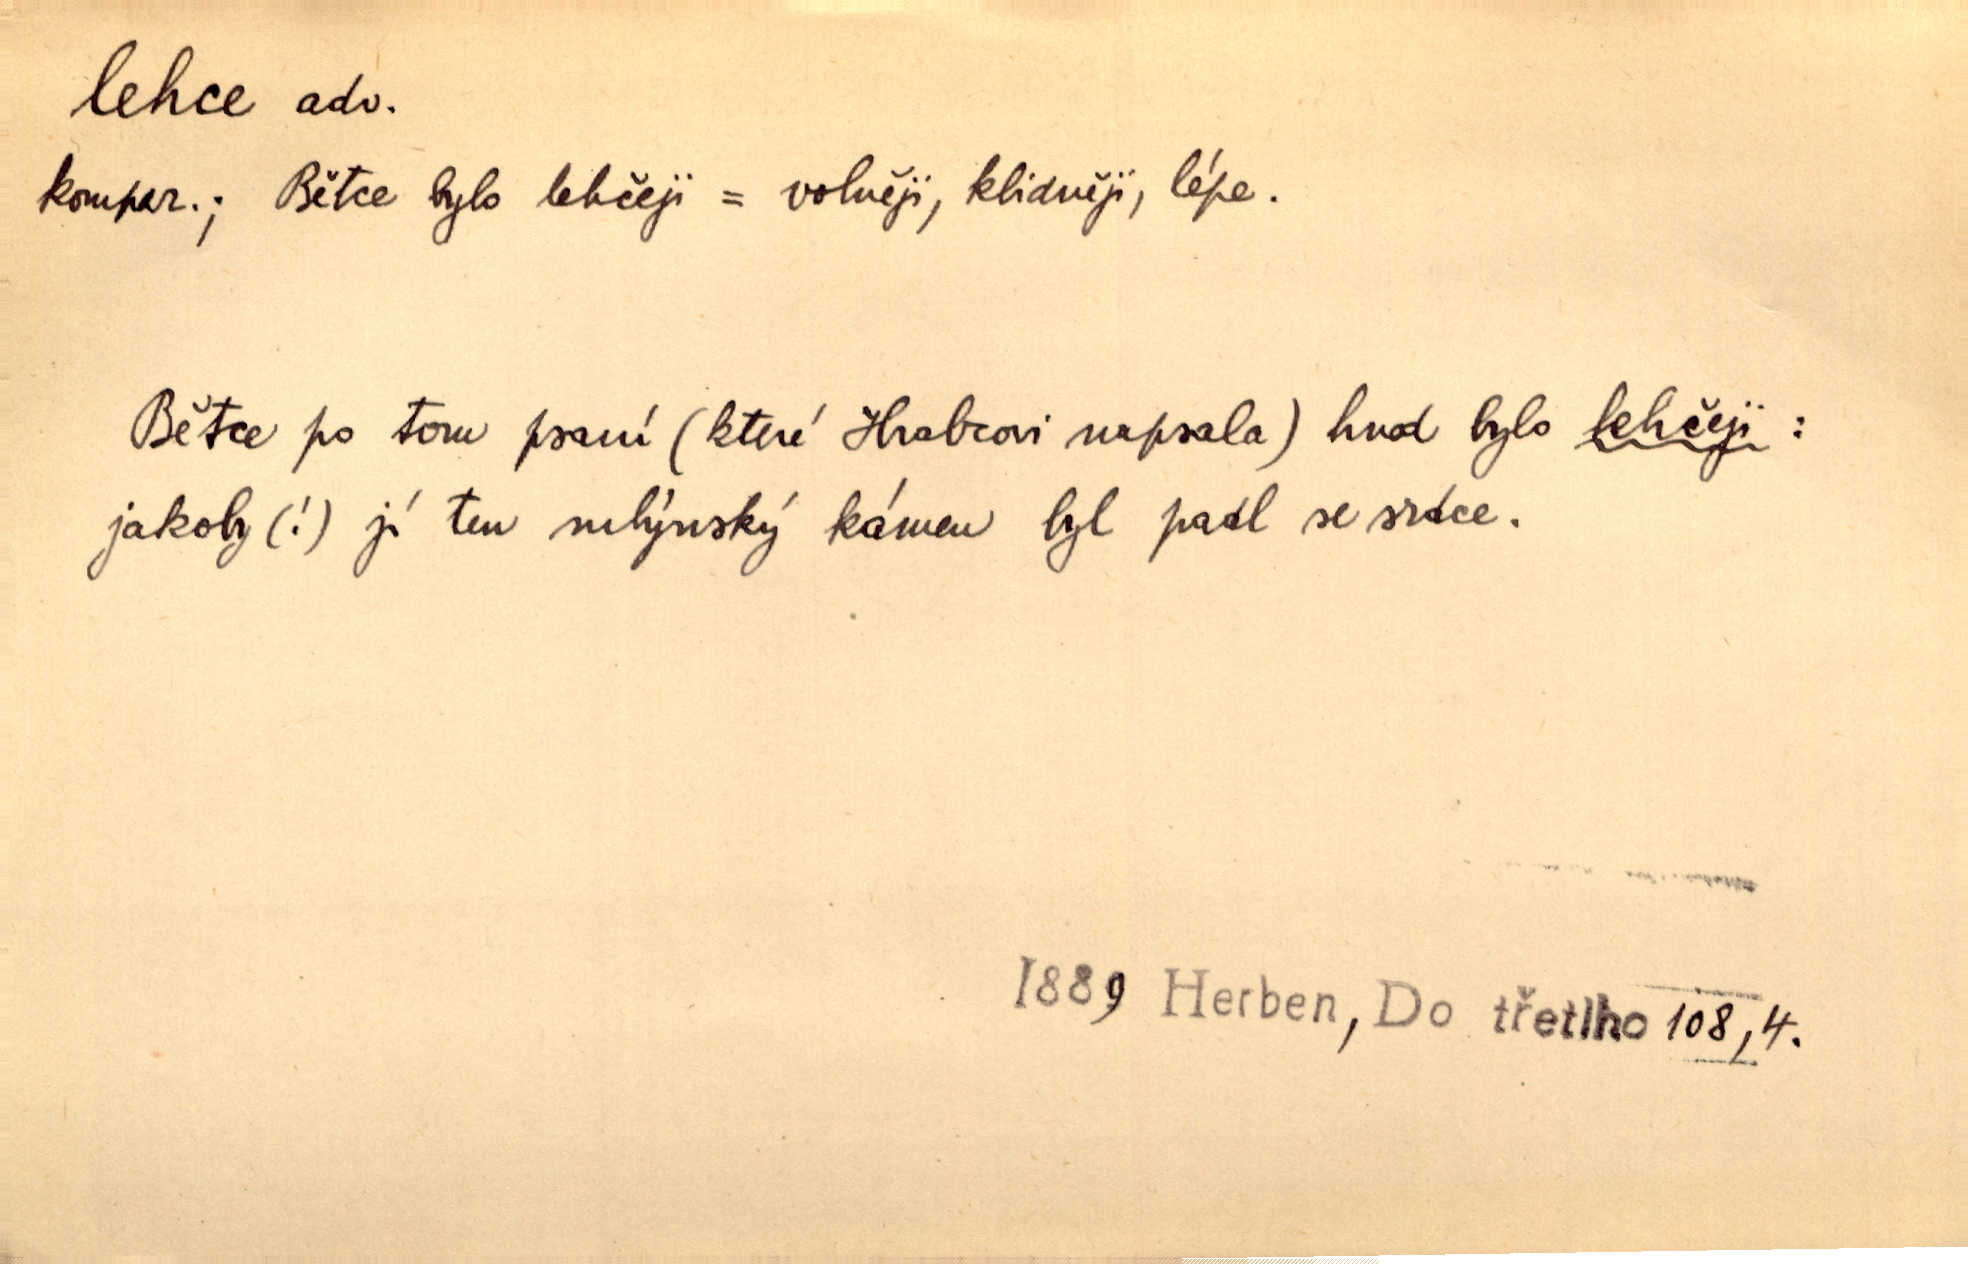 lehce adv.
kompar.; Bětce bylo lehčeji = volněji, klidněji, lépe.
Bětce po tom psaní (které Hrabcovi napsala) hned bylo lehčeji:
jakoby (!) jí ten mlýnský kámen byl padl se srdce.
1889 Herben, Do třetího 108,4.